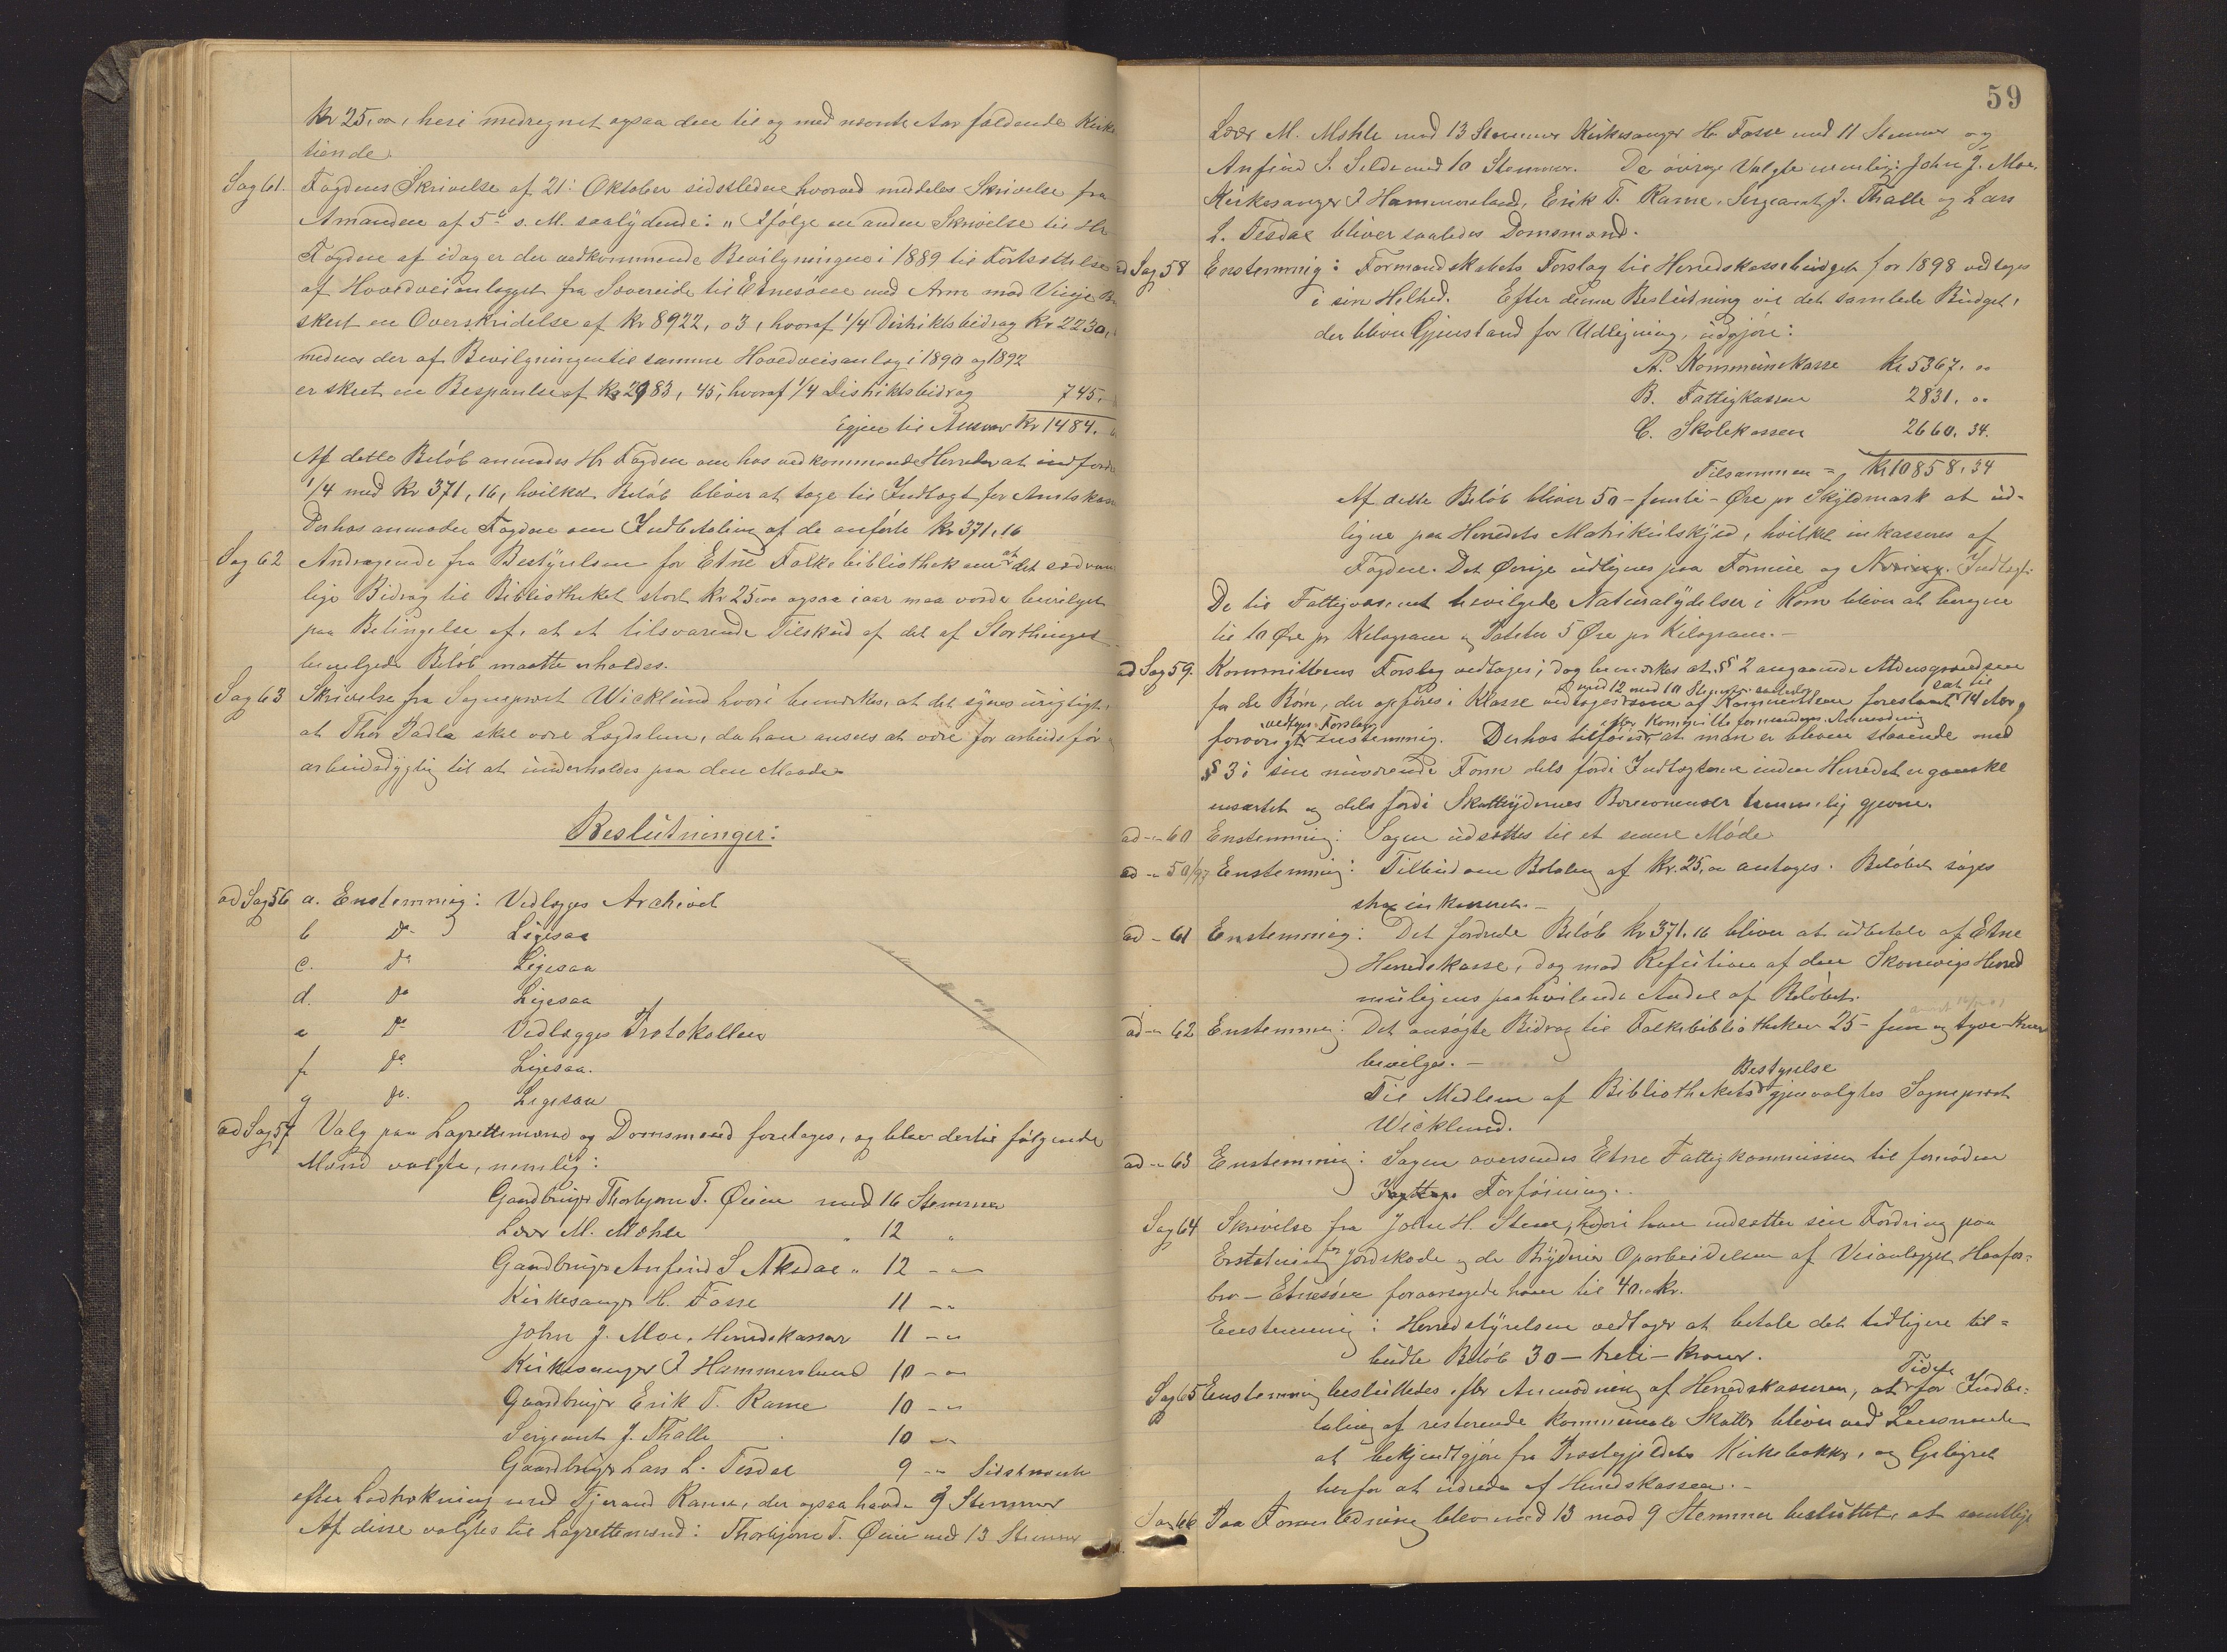 Kr 25,00, heri medregnet ogsaa den til og med næste Aar faldende Kirke
tiende.
Sag 61. Fogdens Skrivelse af 21. Oktober sidstleden hvorved meddeles Skrivelse fra
Amtmanden af 5te s. M. saalydende: "Ifølge en anden Skrivelse til Hr
Fogden af idag er der vedkommende Bevilgningen i 1889 til Fortsættelse
af Hovedveianlægget fra Søvereide til Etnesøen med Arm mod
skeet en Overskridelse af Kr 8922,03, hvoraf 1/4 Distriktsbidrag Kr 2230,
medens der af Bevilgningen til samme Hovedveisanlæg i 1890 og 1892
er skeet en Besparelse af Kr 2983,45, hvoraf 1/4 Distriktsbidrag 745.
igjen til Ansvar Kr 1484.
Af dette Beløb anmodes Hr Fogden om hos vedkommende Herreder at indfordre
1/4 med Kr 371,16, hvilket Beløb bliver at tage til Indtægt for Amtskassen
Derhos anmoder Fogden om Indbetaling af de anførte Kr 371,16
Sag 62 Andragende fra Bestyrelsen for Etne Folkebibliothek om at det sædvan
lige Bidrag til Bibliotheket stort Kr 25,00 ogsaa iaar maa vorde bevilget
paa Betingelse af, at et tilsvarende Tilskud af det af Storthinget
bevilgede Beløb maatte erholdes.
Sag 63 Skrivelse fra Sogneprest Wicklund hvori bemærkes, at det synes urigtigt,
at Thor Sadla skal være Lægdslem, da han ansees at være for arbeidsfør
arbeidsdygtig til at underholdes paa den Maade.
Beslutninger:
ad Sag 56 a. Enstemmig: Vedlægges Archivet
b Do Ligesaa
c. Do Ligesaa
d. Do Ligesaa
e Do Vedlægges Protokollen
f Do Ligesaa.
g Do. Ligesaa
ad Sag 57 Valg paa Lagrettemænd og Domsmænd foretages, og blev dertil følgende
Mænd valgte, nemlig:
Gaardbruger Thorbjørn T. Øien med 16 Stemmer
Lærer M. Mæhle " 12 "
Gaardbruger Anfind S Aksdal " 12 - " -
Kirkesanger H. Fosse 11 - "
John J. Moe, Herredskasserer 11 - "
Kirkesanger I Hammersland 10 - "
Gaardbruger Erik T. Rame 10 - "
Sergeant J. Thalle 10 - "
Gaardbruger Lars L. Tesdal 9 - " Sidstnævnte
efter Lodtrækning med Tjerand Rame, der ogsaa havde 9 Stemmer
Af disse valgtes til Lagrettemænd: Thorbjørn T. Øien med 13 Stemmer
59
Lærer M. Mæhle med 13 Stemmer Kirkesanger H. Fosse med 11 Stemmer og
Anfind S. med 10 Stemmer. De øvrige Valgte nemlig: John J. Moe,
Kirkesanger I Hammersland, Erik T. Rame, Sergeant J. Thalle og Lars
L. Tesdal bliver saaledes Domsmænd.
ad Sag 58 Enstemmig: Formandskabets Forslag til Herredskassebudget for 1898 vedtages
i sin Helhed. Efter denne Beslutning vil det samlede Budget,
der bliver Gjenstand for Udligning, udgjøre:
A. Kommunekasse Kr 5367,00
B. Fattigkassen 2831,00
C. Skolekassen 2660,34.
Tilsammen = Kr 10858,34
Af dette Beløb bliver 50 - femti - Øre pr Skyldmark at ud-
ligne paa Herredets Matrikulskyld, hvilket inkasseres af
Fogden. Det Øvrige udlignes paa Formue og Næring. Indtægt.
De til Fattigvæsenet bevilgede Naturalydelser i Korn bliver at beregne
til 10 Øre pr Kilogram og Poteter 5 Øre pr Kilogram. -
ad Sag 59. Kommitteens Forslag vedtages; dog bemærkes at § 2 angaaende Aldersgrændsen
for de Børn, der opføres i Klasse vedtages med 12 mod 10 Stemmer som af Kommitteen foreslaaet sat til 14 Aar og
forøvrigt vedtages Forslaget enstemmig. Derhos tilføies efter Kommitteformandens Anmodning at man er bleven staaende med
§ 3 i sin nuværende Form dels fordi Indtægterne inden Herredet er ganske
ensartet og dels fordi Skatteydernes er temmelig gjevne.
ad - " 60 Enstemmig: Sagen udsættes til et senere Møde
ad - " 50/97 Enstemmig: Tilbud om Betaling af Kr. 25,00 antages. Beløbet søges
strax inkasseret. -
ad - 61 Enstemmig: Det fordrede Beløb Kr 371,16 bliver at udbetale af Etne
Herredskasse, dog mod Refusion af den Skonevigs Herred
muligens paahvilende Andel af Beløbet.
ad - " 62 Enstemmig: Det ansøgte Bidrag til Folkebibliotheket 25 - fem og tyve - Kroner
bevilges. -
Til Medlem af Bibliothekets Bestyrelse gjenvalgtes Sogneprest
Wicklund.
ad - " 63 Enstemmig: Sagen oversendes Etne Fattigkommission til fornøden
Forføining.
Sag 64 Skrivelse fra John H. Stene, hvori han nedsætter sin Fordring paa
Erstatning for Jordskade og de Bryderier Oparbeidelsen af Veianlægget Haafos-
bro - Etnesøen foraarsagede ham til 40,00 kr.
Enstemmig: Herredstyrelsen vedtager at betale det tidligere til-
budte Beløb 30 - treti - Kroner.
Sag 65 Enstemmig besluttedes efter Anmodning af Herredskassereren, at Tiden for Indbe-
taling af resterende kommunale Skatter bliver ved Lensmanden
at bekjendtgjøre fra Prestegjeldets Kirkebakker, og Gebyret
herfor at udrede af Herredskassen. -
Sag 66 Paa Foranledning blev med 13 mod 9 Stemmer besluttet, at samtlige